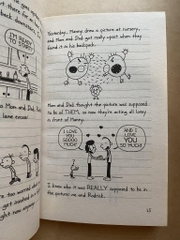 I'M READY
TO START
so Mom and Dad
lame excuse
too worried
created
Yesterday, Manny drew a picture at nursery,
and Mom and Dad got really upset when they
found it in his backpack.
Mom and Dad thought the picture was supposed
to be of THEM, so now they're acting all lovey
in front of Manny.
I LOVE
YOU
SOOOO
MUCH!
AND I
LOVE YOU
SO MUCH!
I knew who it was REALLY supposed to be in
the picture: me and Rodrick.